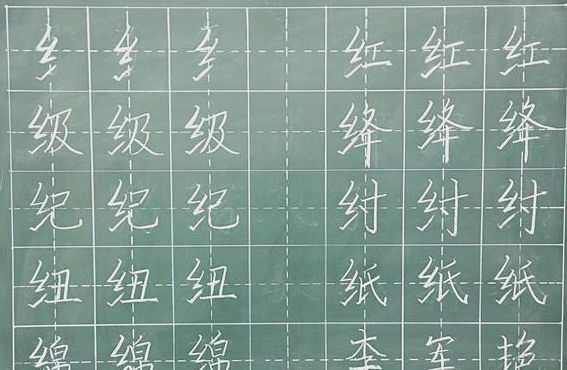 纟纟纟 红红红
级级级 绛绛绛
纪纪纪 纣纣纣
纽纽纽 纸纸纸
绵绵绵 李军艳